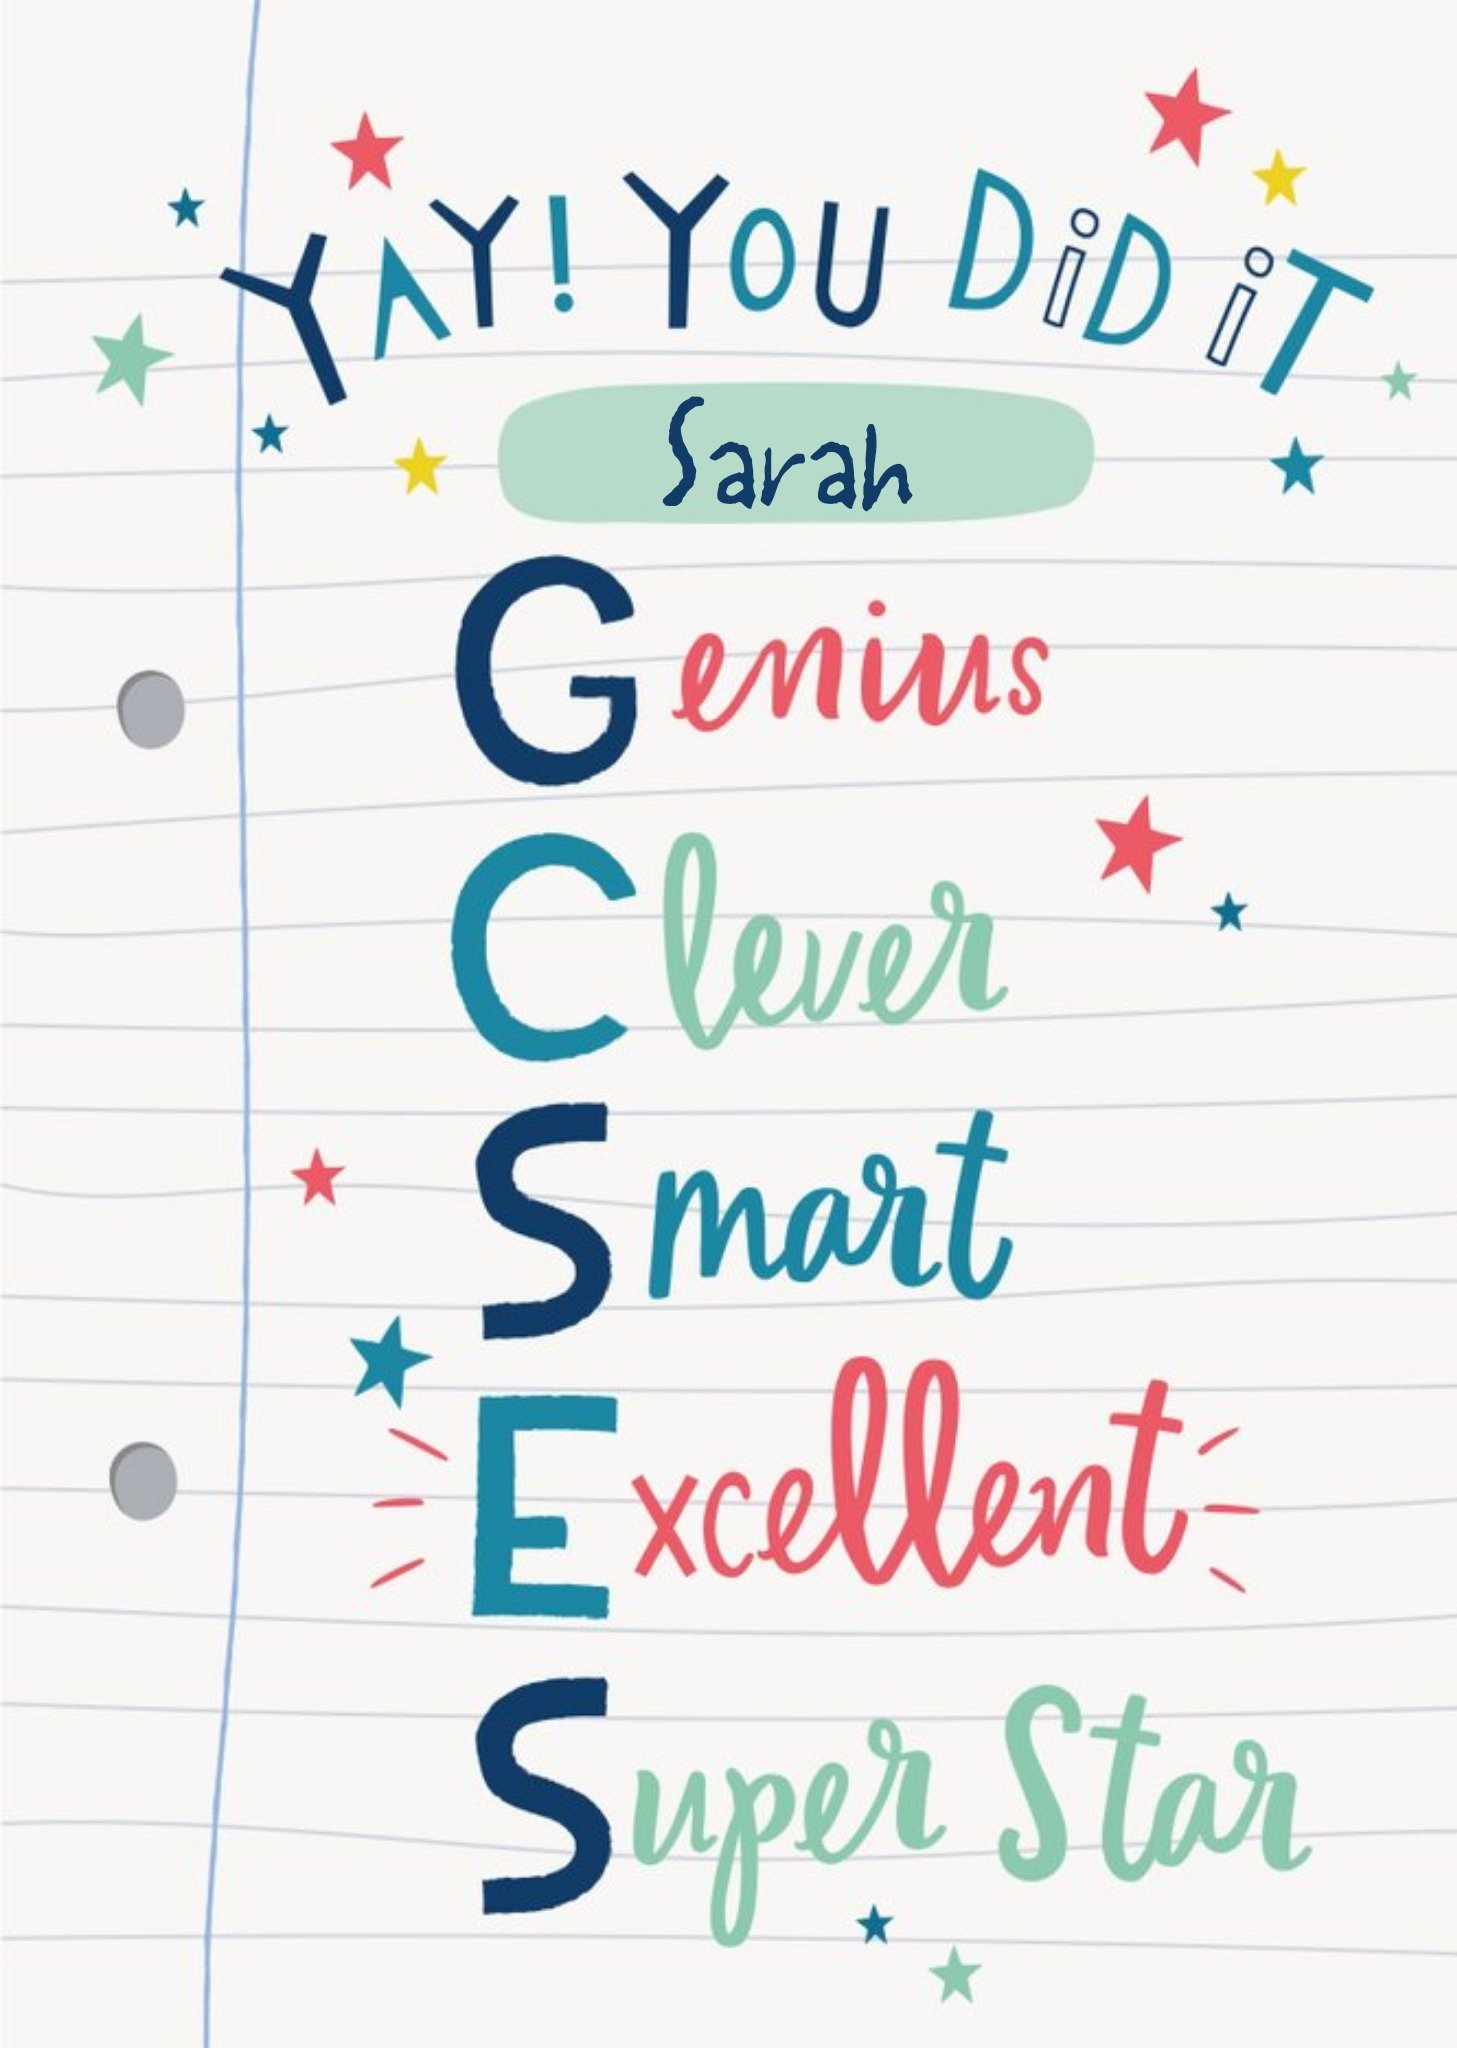 YAY! YOU DiD iT
Sarah
Genius
Clever
Smart
Excellent
Super Star